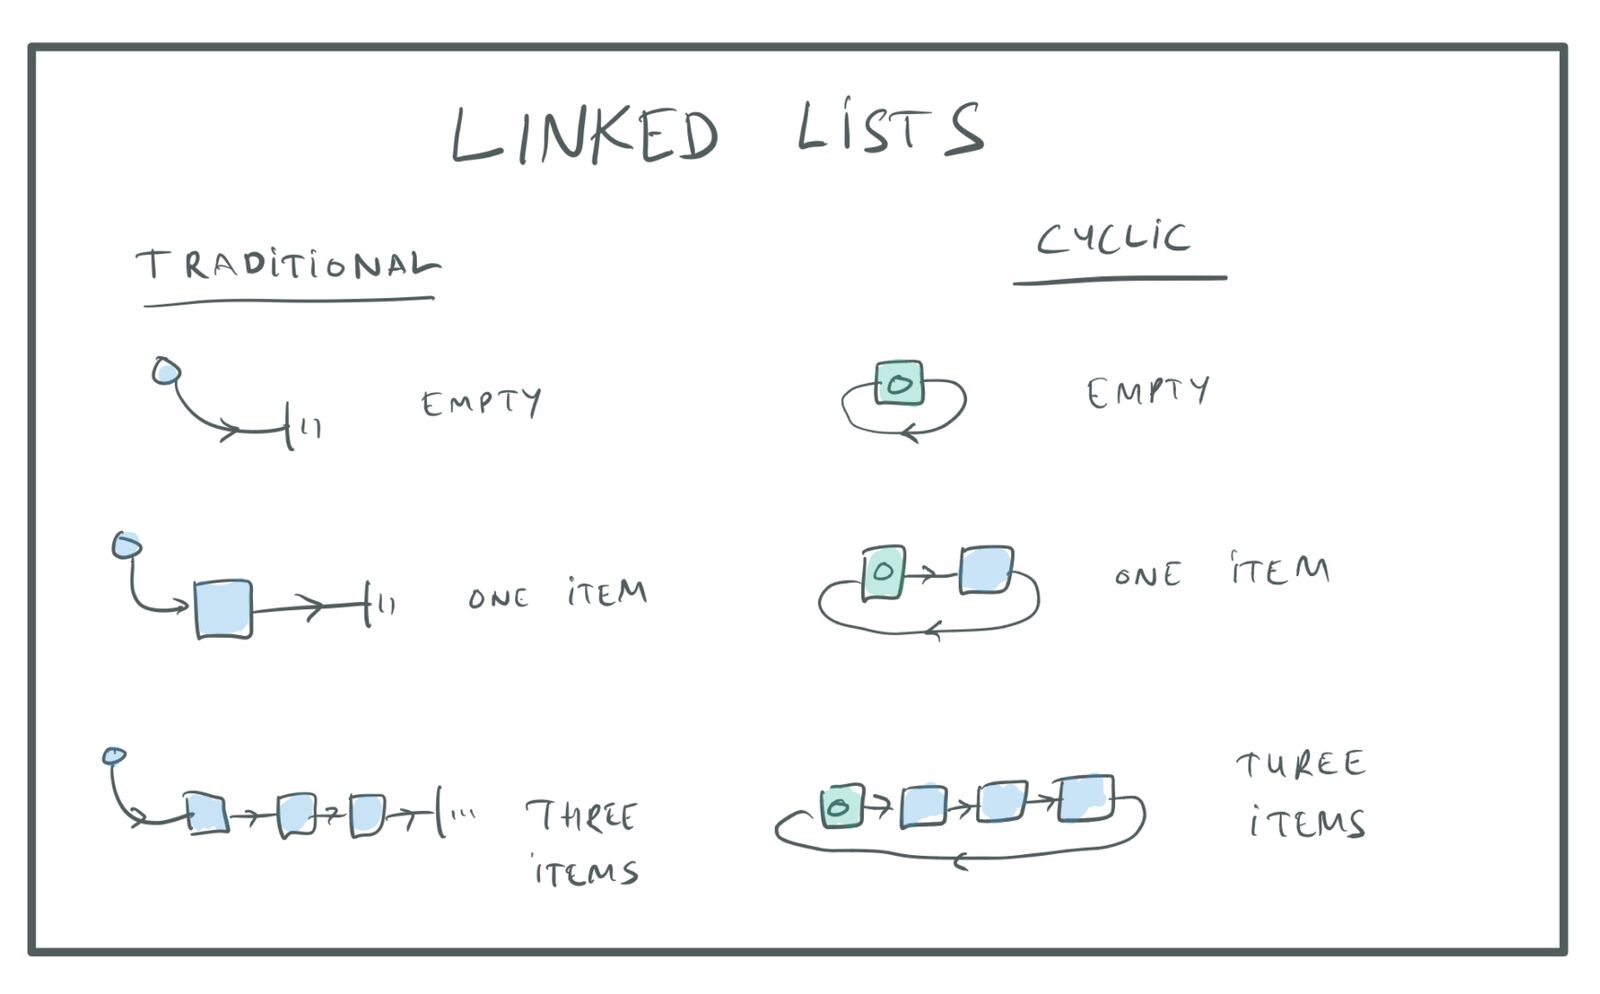 LINKED LISTS
TRADITIONAL
EMPTY
ONE ITEM
THREE
ITEMS
CYCLIC
O
EMPTY
O
ONE ITEM
O
THREE
ITEMS